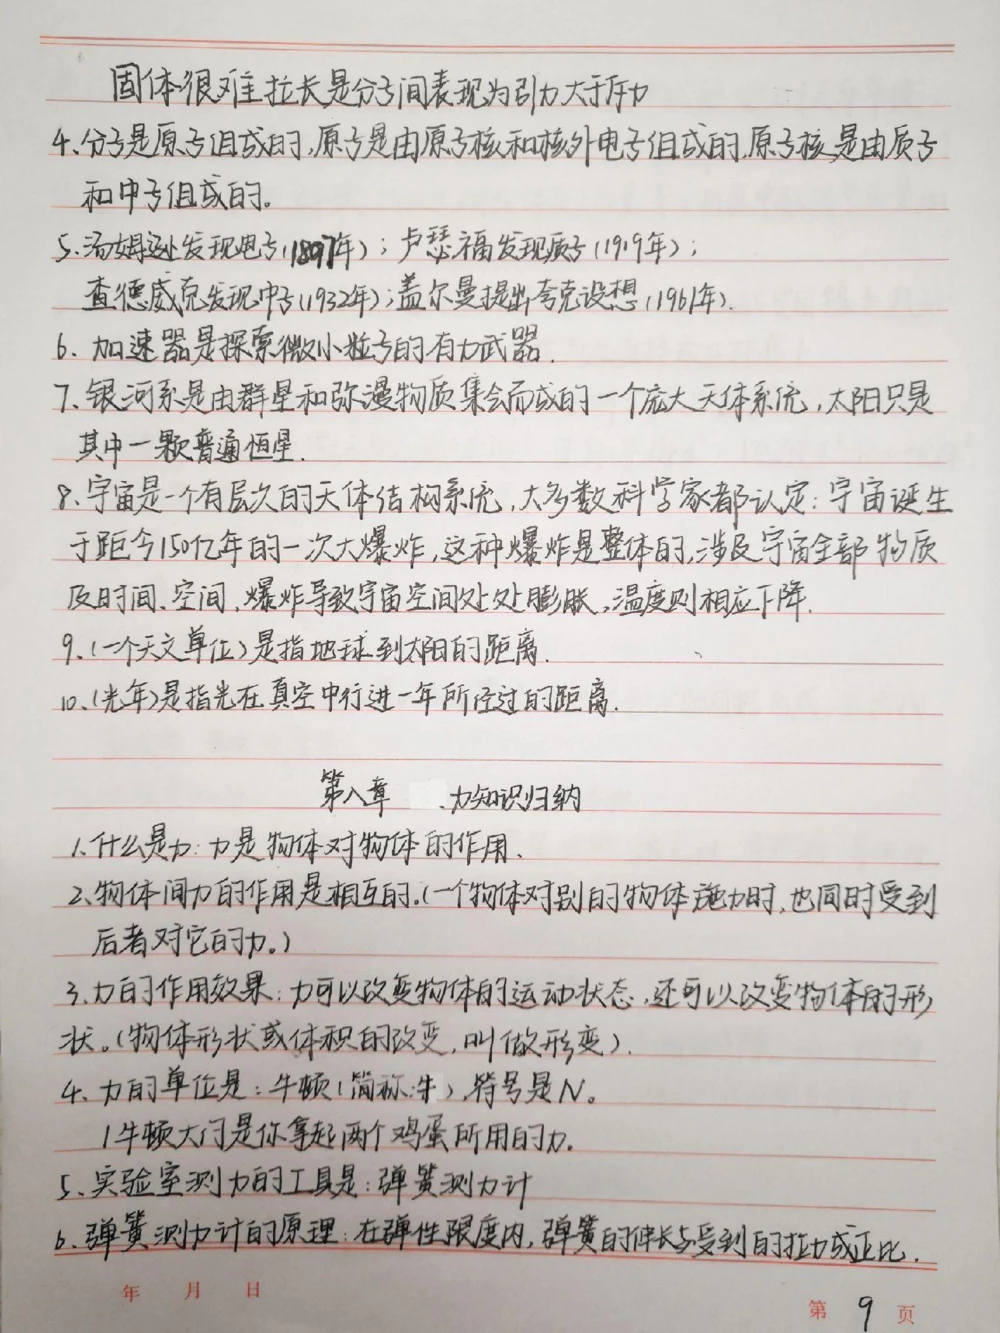 固体很难拉长是分子间表现为引力大于斥力
4、分子是原子组成的,原子是由原子核和核外电子组成的,原子核是由质子
和中子组成的。
5、汤姆逊发现电子(1897年);卢瑟福发现质子(1919年);
查德威克发现中子(1932年);盖尔曼提出夸克设想(1961年).
6、加速器是探索微小粒子的有力武器.
7、银河系是由群星和弥漫物质集会而成的一个庞大天体系统,太阳只是
其中一颗普通恒星.
8、宇宙是一个有层次的天体结构系统,大多数科学家都认定:宇宙诞生
于距今150亿年的一次大爆炸,这种爆炸是整体的,涉及宇宙全部物质
及时间、空间,爆炸导致宇宙空间处处膨胀,温度则相应下降.
9、(一个天文单位)是指地球到太阳的距离.
10、(光年)是指光在真空中行进一年所经过的距离.
第八章 力知识归纳
1、什么是力:力是物体对物体的作用.
2、物体间力的作用是相互的.(一个物体对别的物体施力时,也同时受到
后者对它的力。)
3、力的作用效果:力可以改变物体的运动状态,还可以改变物体的形
状。(物体形状或体积的改变,叫做形变).
4、力的单位是:牛顿(简称:牛),符号是N。
1牛顿大门是你拿起两个鸡蛋所用的力.
5、实验室测力的工具是:弹簧测力计
6、弹簧测力计的原理:在弹性限度内,弹簧的伸长与受到的拉力成正比.
年 月 日
第 9 页